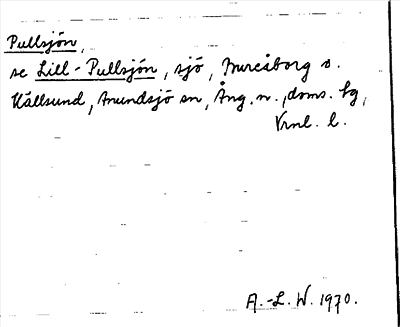 Pullsjön,
se Lill-Pullsjön, sjö, Inreåborg o.
Källsund, Anundsjö sn, Ång. n., doms. hg,
Vrnl. l.
A.-L. W. 1970.